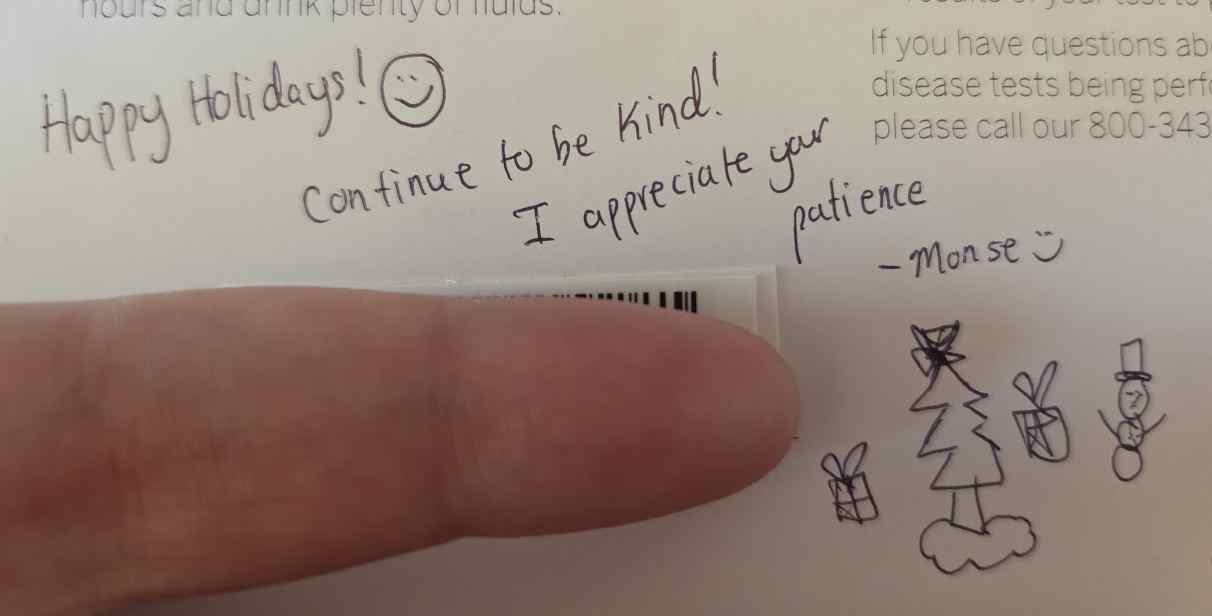 hours and drink plenty of fluids.
Happy Holidays!
Continue to be Kind!
I appreciate your
patience
- Monse
If you have questions ab
disease tests being perfo
please call our 800-343